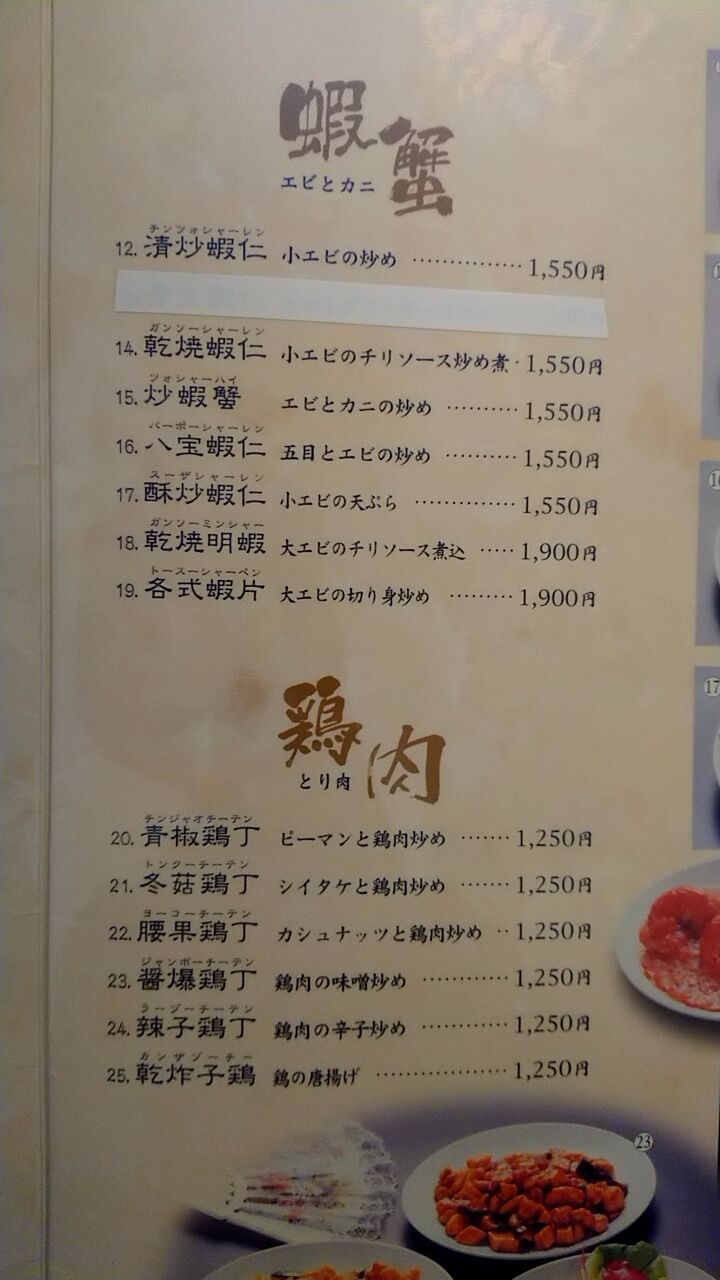 蝦蟹
エビとカニ
チンツォシャーレン
12. 清炒蝦仁 小エビの炒め ……………… 1,550円
ガンソーシャーレン
14. 乾焼蝦仁 小エビのチリソース炒め煮 · 1,550円
ツォシャーハイ
15. 炒蝦蟹 エビとカニの炒め ………… 1,550円
パーポーシャーレン
16. 八宝蝦仁 五目とエビの炒め ………… 1,550円
スーザシャーレン
17. 酥炒蝦仁 小エビの天ぷら ……………… 1,550円
ガンソーミンシャー
18. 乾焼明蝦 大エビのチリソース煮込 ‥‥· 1,900円
トースーシャーペン
19. 各式蝦片 大エビの切り身炒め ……… 1,900円
鶏肉
とり肉
チンジャオチーテン
20. 青椒鶏丁 ピーマンと鶏肉炒め ……· 1,250円
トンクーチーテン
21. 冬菇鶏丁 シイタケと鶏肉炒め ……· 1,250円
ヨーコーチーテン
22. 腰果鶏丁 カシュナッツと鶏肉炒め ‥ 1,250円
ジャンポーチーテン
23. 醤爆鶏丁 鶏肉の味噌炒め ………… 1,250円
ラーヅーチーテン
24. 辣子鶏丁 鶏肉の辛子炒め ………… 1,250円
カンザヅーチー
25. 乾炸子鶏 鶏の唐揚げ ……………… 1,250円
17
23